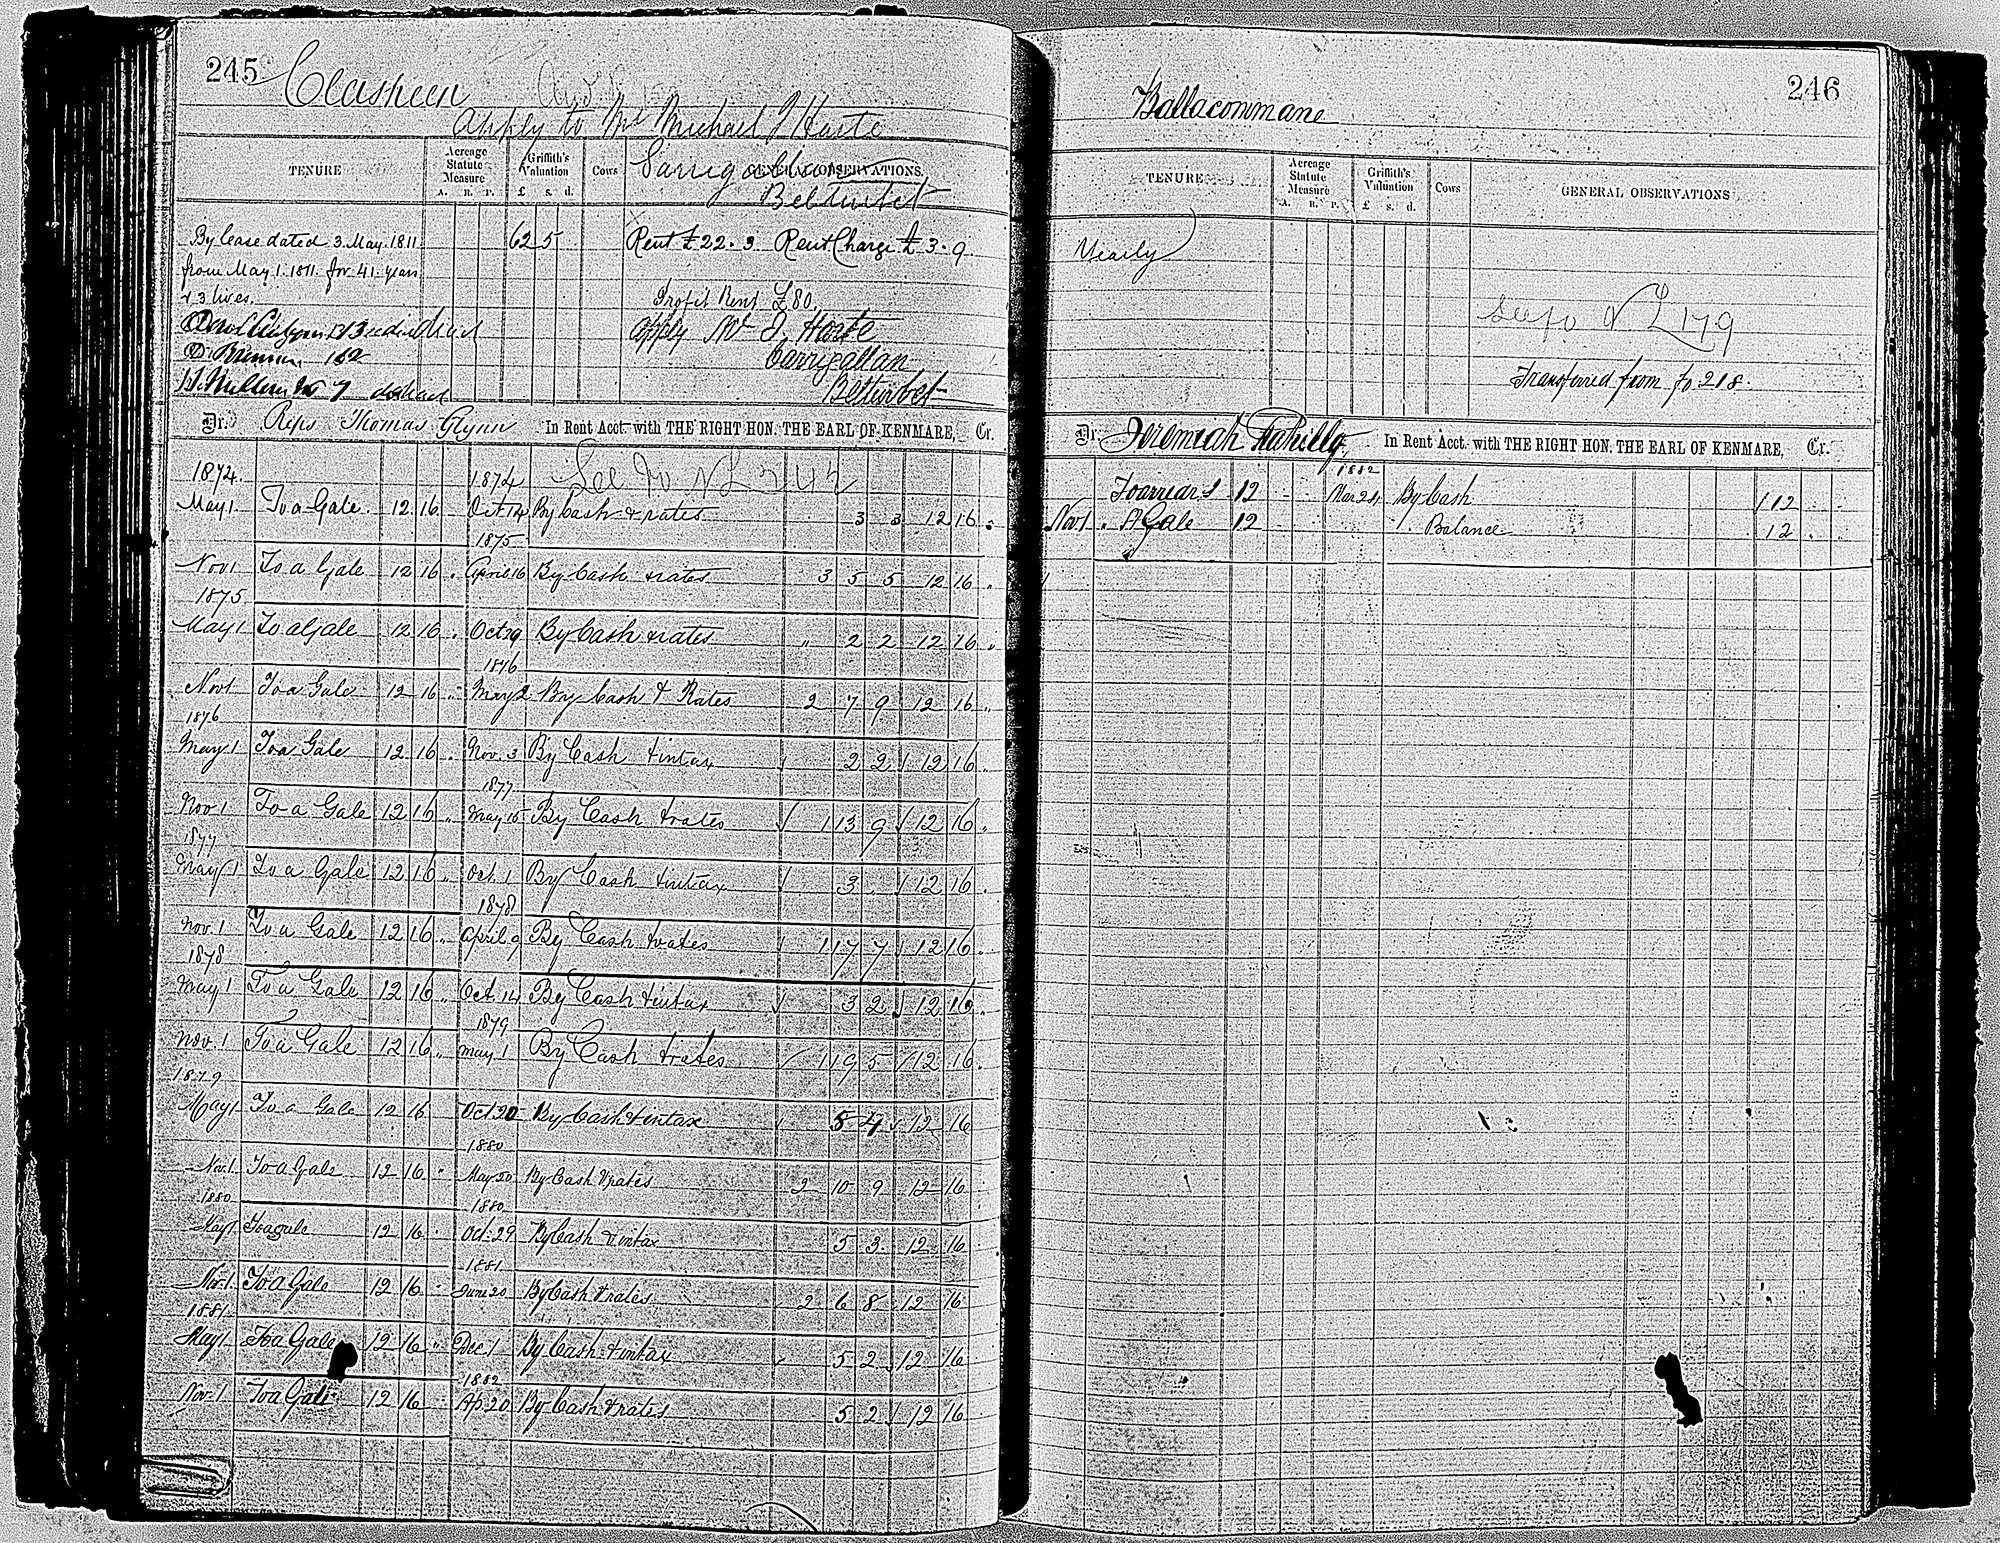 245
Clasheen
Apply to Mr Michael J Harte
TENURE
Acreage Statute Measure
A. R. P.
Griffith's Valuation
£ s. d.
Cows
GENERAL OBSERVATIONS.
Belturbet
By lease dated 3. May. 1811
62 5
Rent £22. 3. Rent Charge £3. 9
from May 1. 1811. for 41. years
& 3 lives.
Profit Rent £80.
apply Mr J. Harte
Carrigallan
Belturbet
Dr. Reps Thomas Glynn In Rent Acct. with THE RIGHT HON. THE EARL OF KENMARE, Cr.
1874. 1874 See fo NL 242
May 1 To a Gale. 12 16 Oct 14 By Cash & rates 3 3 12 16 "
1875
Nov 1 To a Gale 12 16 . April 16 By Cash & rates 3 5 5 12 16 "
1875
May 1 To a Gale 12 16 . Oct 29 By Cash & rates " 2 2 12 16 "
1876
Nov 1 To a Gale 12 16 " May 2 By Cash & Rates 2 7 9 12 16 "
1876
May 1 To a Gale 12 16 . Nov. 3 By Cash & intax 2 2 12 16 .
1877
Nov 1 To a Gale 12 16 . May 15 By Cash & rates 1 13 9 12 16 .
1877
May 1 To a Gale 12 16 . Oct. 1 By Cash & intax 3 . 12 16 .
1878
Nov. 1 To a Gale 12 16 . April 9 By Cash & rates 1 17 7 12 16 .
1878
May 1 To a Gale 12 16 . Oct. 14 By Cash & intax 3 2 12 16 .
1879
Nov. 1 To a Gale 12 16 . May 1 By Cash & rates 1 19 5 12 16 .
1879
May 1 To a Gale 12 16 Oct. 20 By Cash & intax 5 4 12 16
1880
Nov. 1 To a Gale 12 16 " May 20 By Cash & rates 2 10 9 12 16
1880 1880
May 1 To a gale 12 16 . Oct. 29 By Cash & intax 5 3 12 16
1881
Nov. 1 To a Gale 12 16 . June 20 By Cash & rates 2 6 8 12 16
1881
May 1 To a Gale 12 16 " Dec 1 By Cash & intax 5 2 12 16
1882
Nov. 1 To a Gale 12 16 Ap. 20 By Cash & rates 5 2 12 16
246
Ballacommane
TENURE
Acreage Statute Measure
A. R. P.
Griffith's Valuation
£ s. d.
Cows
GENERAL OBSERVATIONS
Yearly
See fo NL 179
Transferred from fo 218.
Dr Jeremiah Fahilly In Rent Acct. with THE RIGHT HON. THE EARL OF KENMARE, Cr.
1882
To arrears 12 Mar 24 By Cash 12
Nov 1 . " Gale 12 . Balance 12